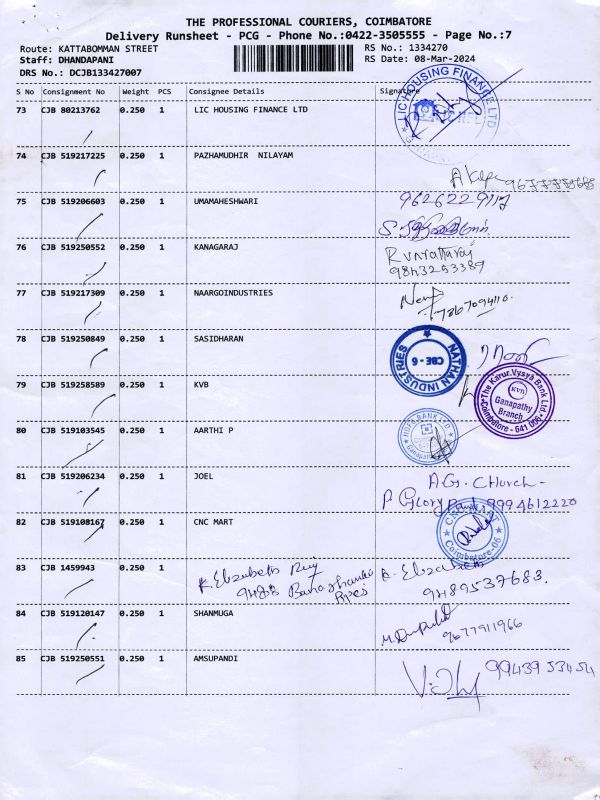 THE PROFESSIONAL COURIERS, COIMBATORE
Delivery Runsheet - PCG - Phone No.:0422-3505555 - Page No.:7
Route: KATTABOMMAN STREET RS No.: 1334270
Staff: DHANDAPANI RS Date: 08-Mar-2024
DRS No.: DCJB133427007
S No Consignment No Weight PCS Consignee Details Signature
73 CJB 80213762 0.250 1 LIC HOUSING FINANCE LTD
LIC HOUSING FINANCE LTD
74 CJB 519217225 0.250 1 PAZHAMUDHIR NILAYAM
75 CJB 519206603 0.250 1 UMAMAHESHWARI
76 CJB 519250552 0.250 1 KANAGARAJ
9843253389
77 CJB 519217309 0.250 1 NAARGOINDUSTRIES
78 CJB 519250849 0.250 1 SASIDHARAN
NATHAN INDUSTRIES
CBE - 6
79 CJB 519258589 0.250 1 KVB
The Karur Vysya Bank Ltd.
KVB
Ganapathy
Branch
Coimbatore - 641 006
80 CJB 519103545 0.250 1 AARTHI P
81 CJB 519206234 0.250 1 JOEL
A.G. Church -
P Glory 9994612220
82 CJB 519108167 0.250 1 CNC MART
CNC MART
Coimbatore-06
83 CJB 1459943 0.250 1
K. Elizabeth K. Elizabeth
9489537683.
84 CJB 519120147 0.250 1 SHANMUGA
9677911966
85 CJB 519250551 0.250 1 AMSUPANDI